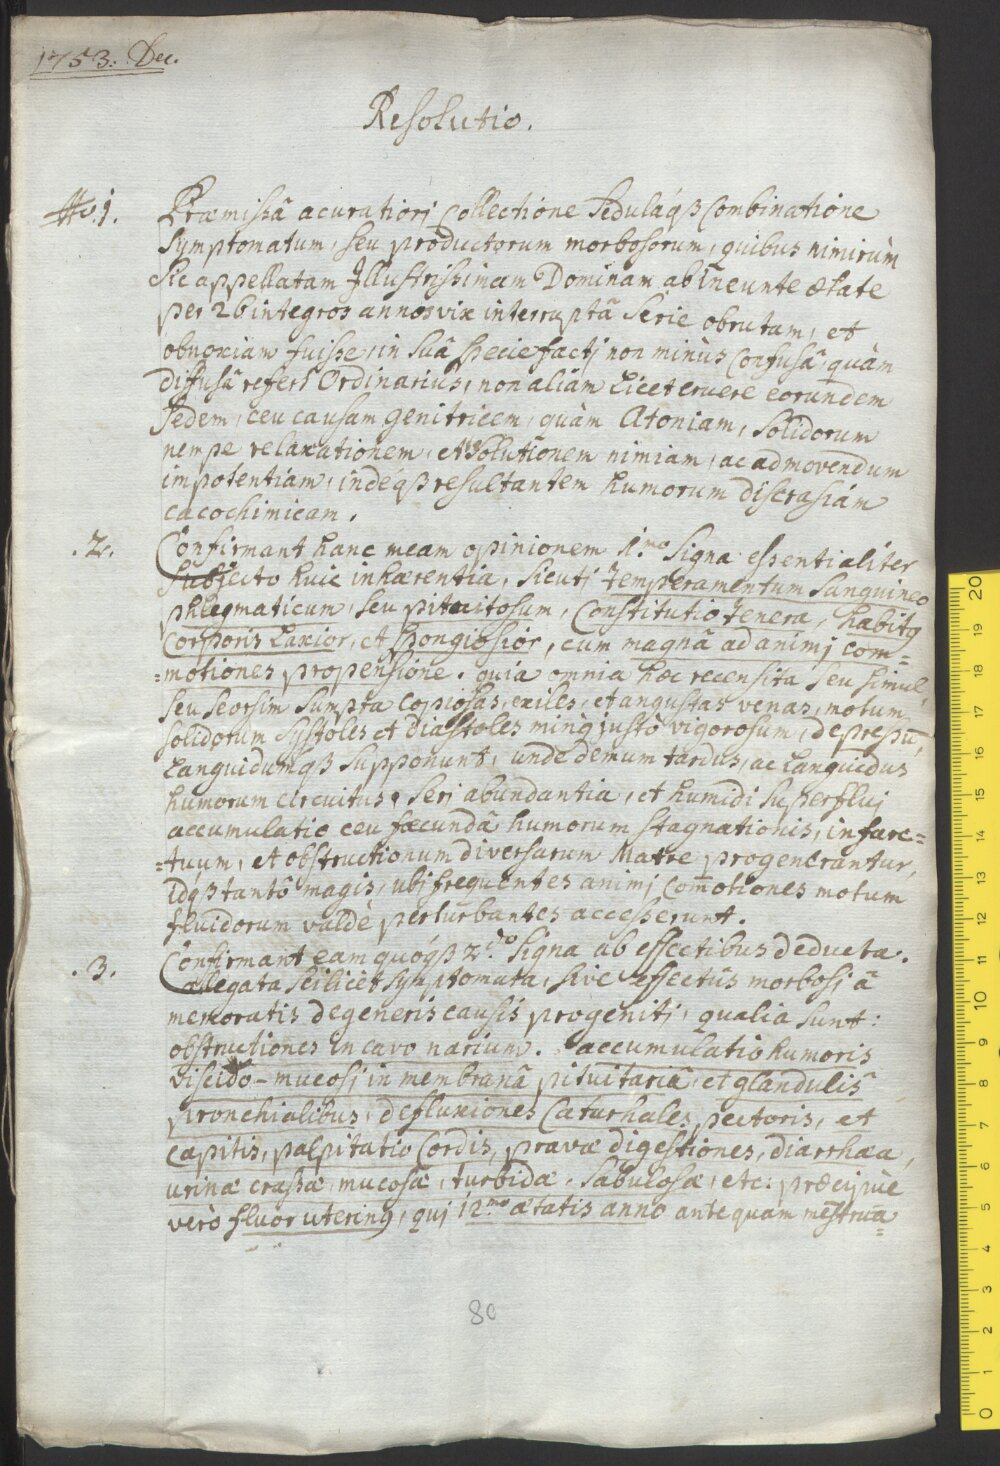 1753: Dec.
Resolutio.
No. 1. Præmissâ acuratiori Collectione Sedulaq́ꝫ Combinatione
Symptomatum, seu productorum morbosorum, quibus nimirùm
Sic appellatam Jllustrissimam Dominam ab ineunte ætate
per 26 integros annos vix interruptâ Serie obrutam, et
obnoxiam fuisse, in suâ specie factj non minùs Confusâ, quàm
diffusâ refert Ordinarius, non aliàm Licet eruere eorundem
Sedem, ceu causam genitricem, quàm Atoniam, Solidorum
nempe relaxationem, et solutionem nimiam, ac ad movendum
impotentiam, indéqꝫ resultantem humorum discrasiám
cacochimicam.
.2. Confirmant hanc meam opinionem 1.mo Signa essentialiter
Subjecto huic inhærentia, sicutj Temperamentum Sanguineo
phlegmaticum, seu pituitosum, Constitutio Tenera, habitꝰ
Corporis Laxior, et spongiosior, cum magnâ ad animj com=
=motiones propensione. quia omnia hæc recensita seu simul,
seu Seorsim Sumpta Copiosas, exiles, et angustas venas, motum
solidorum Systoles et diastoles minꝰ justò vigorosum, depressu,
Languidumqꝫ Supponunt, unde demum tardus, ac Languidus
humorum circuitus, Serj abundantia, et humidi Superfluj
accumulatio ceu fæcundâ humorum stagnationis, infarc=
=tuum, et obstructionum diversarum Matre progenerantur,
idqꝫ tantò magis, ubj frequentes animj Com̄otiones motum
fluidorum valdè perturbantes accesserunt.
.3. Confirmant eam quóqꝫ 2.do Signa ab effectibus deducta.
Allegata Scilicet Symptomata, sive effectûs morbosj â
memoratis degeneris causis progenitj, qualia Sunt:
obstructiones in cavo narium. accumulatio humoris
viscido-mucosj in membranâ pituitariâ, et glandulis
pronchialibus, defluxiones Catarhales pectoris, et
capitis, palpitatio Cordis, pravæ digestiones, diarrhæa,
urinæ crassæ, mucosæ, turbidæ, Sabulosæ, etc: præcipuè
verò fluor uterinꝰ, quj 12.mo ætatis anno antequam mēstrua=
80
20 19 18 17 16 15 14 13 12 11 10 9 8 7 6 5 4 3 2 1 0